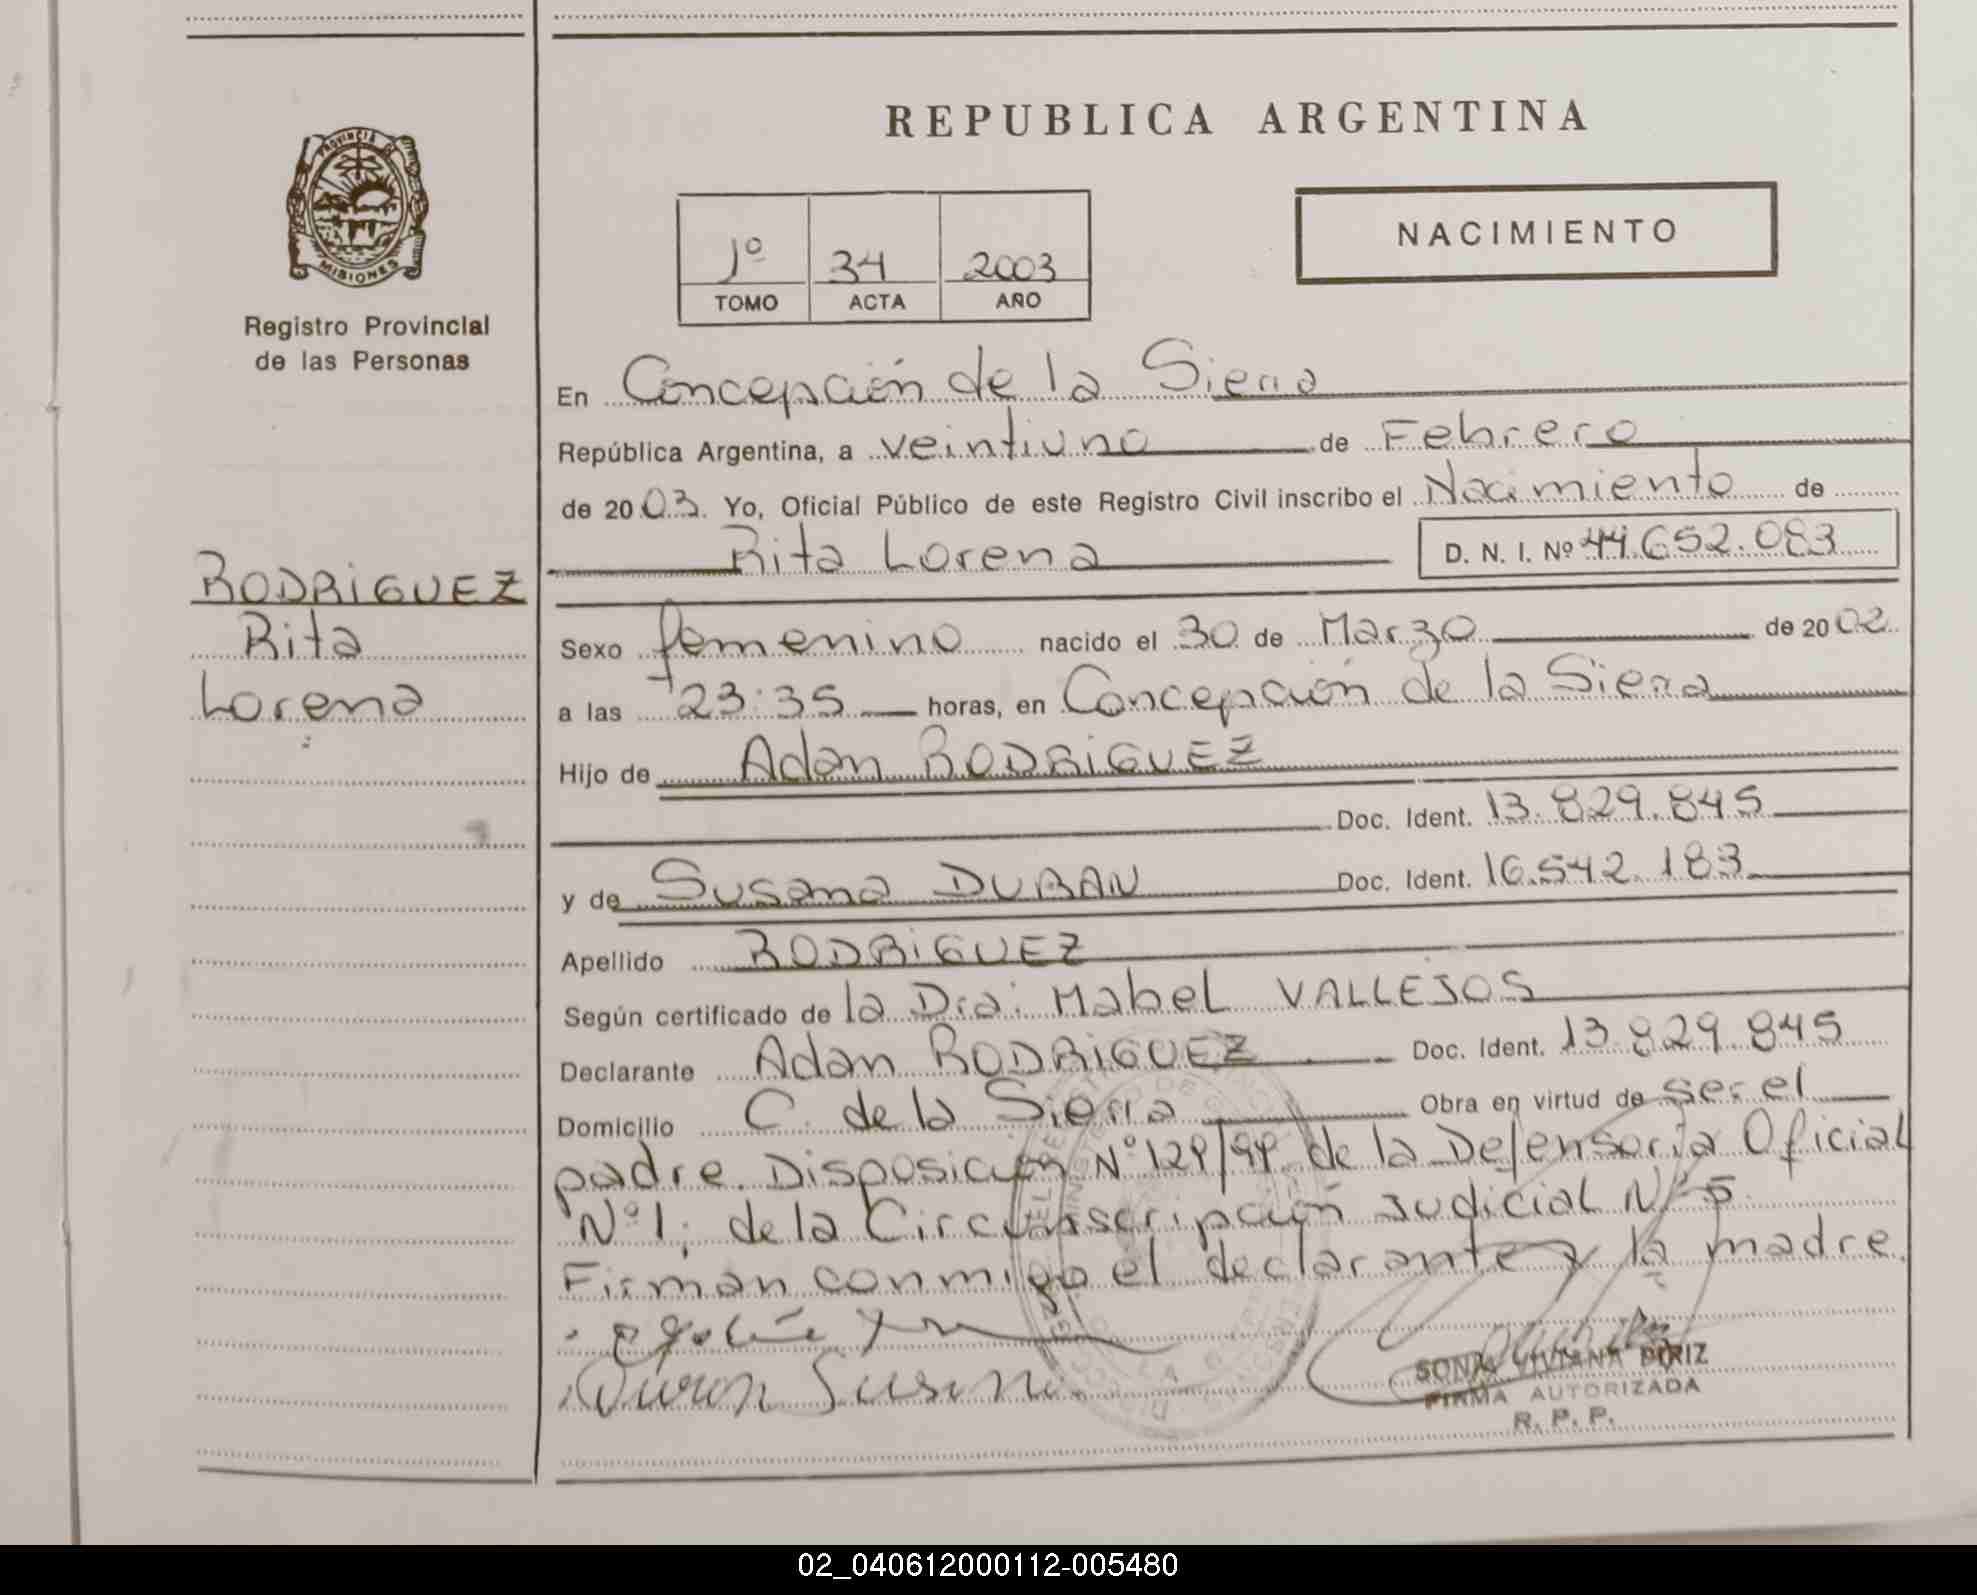 REPUBLICA ARGENTINA
PROVINCIA DE
MISIONES
Registro Provincial
de las Personas
1º 34 2003
TOMO ACTA AÑO
NACIMIENTO
En Concepción de la Sierra
República Argentina, a veintiuno de Febrero
de 2003. Yo, Oficial Público de este Registro Civil inscribo el Nacimiento de
Rita Lorena D. N. I. Nº 44.652.083
RODRiGUEZ
Rita
Lorena
Sexo femenino nacido el 30 de Marzo de 2002
a las 23:35 horas, en Concepción de la Sierra
Hijo de Adan RODRiGUEZ
Doc. Ident. 13.829.845
y de Susana DURAN Doc. Ident. 16.542.183
Apellido RODRiGUEZ
Según certificado de la Dra: Mabel VALLEJOS
Declarante Adan RODRiGUEZ Doc. Ident. 13.829.845
Domicilio C. de la Sierra Obra en virtud de ser el
padre. Disposición Nº 129/99 de la Defensoría Oficial
Nº 1, de la Circunscripción Judicial Nº 5
Firman conmigo el declarante y la madre.
Duran Susana
SONIA VIVIANA PIRIZ
FIRMA AUTORIZADA
R. P. P.
02_040612000112-005480